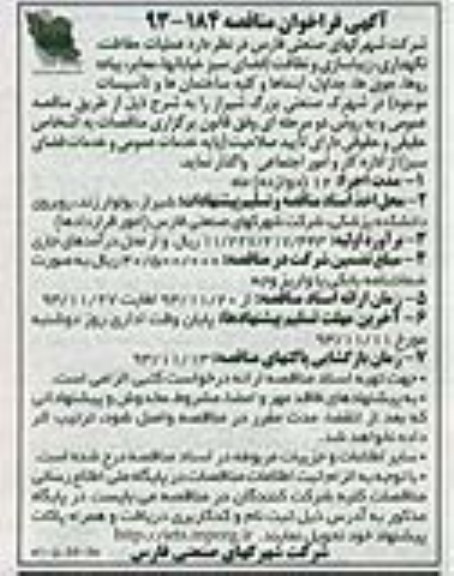 آگهی فراخوان مناقصه ۱۸۴-۹۳
شرکت شهرکهای صنعتی فارس در نظر دارد عملیات حفاظت،
نگهداری، زیباسازی و نظافت (فضای سبز خیابانها، معابر، پیاده
روها، جوی ها، جداول، ابنماها و کلیه ساختمان ها و تأسیسات
موجود) در شهرک صنعتی بزرگ شیراز را به شرح ذیل از طریق مناقصه
عمومی و به روش دو مرحله ای وفق قانون برگزاری مناقصات به اشخاص
حقیقی و حقوقی دارای تأیید صلاحیت (پایه خدمات عمومی و خدمات فضای
سبز) از اداره کار و امور اجتماعی واگذار نماید.
۱- مدت اجرا: ۱۲ (دوازده) ماه
۲- محل اخذ اسناد مناقصه و تسلیم پیشنهادات: شیراز، بولوار زند، روبروی
دانشکده پزشکی، شرکت شهرکهای صنعتی فارس (امور قراردادها)
۳- برآورد اولیه: ریال و از محل درآمدهای جاری
۴- مبلغ تضمین شرکت در مناقصه: ریال به صورت
ضمانتنامه بانکی یا واریز وجه
۵- زمان ارائه اسناد مناقصه: از لغایت
۶- آخرین مهلت تسلیم پیشنهادها: پایان وقت اداری روز دوشنبه
مورخ
۷- زمان بازگشایی پاکتهای مناقصه:
• جهت تهیه اسناد مناقصه ارائه درخواست کتبی الزامی است.
• به پیشنهادهای فاقد مهر و امضا، مشروط، مخدوش و پیشنهاداتی
که بعد از انقضا مدت مقرر در مناقصه واصل شود، ترتیب اثر
داده نخواهد شد.
• سایر اطلاعات و جزییات مربوطه در اسناد مناقصه درج شده است.
• با توجه به الزام ثبت اطلاعات مناقصات در پایگاه ملی اطلاع رسانی
مناقصات کلیه شرکت کنندگان در مناقصه می بایست در پایگاه
مذکور به آدرس ذیل ثبت نام و کد کاربری دریافت و همراه پاکت
پیشنهاد خود تحویل نمایند.
شرکت شهرکهای صنعتی فارس